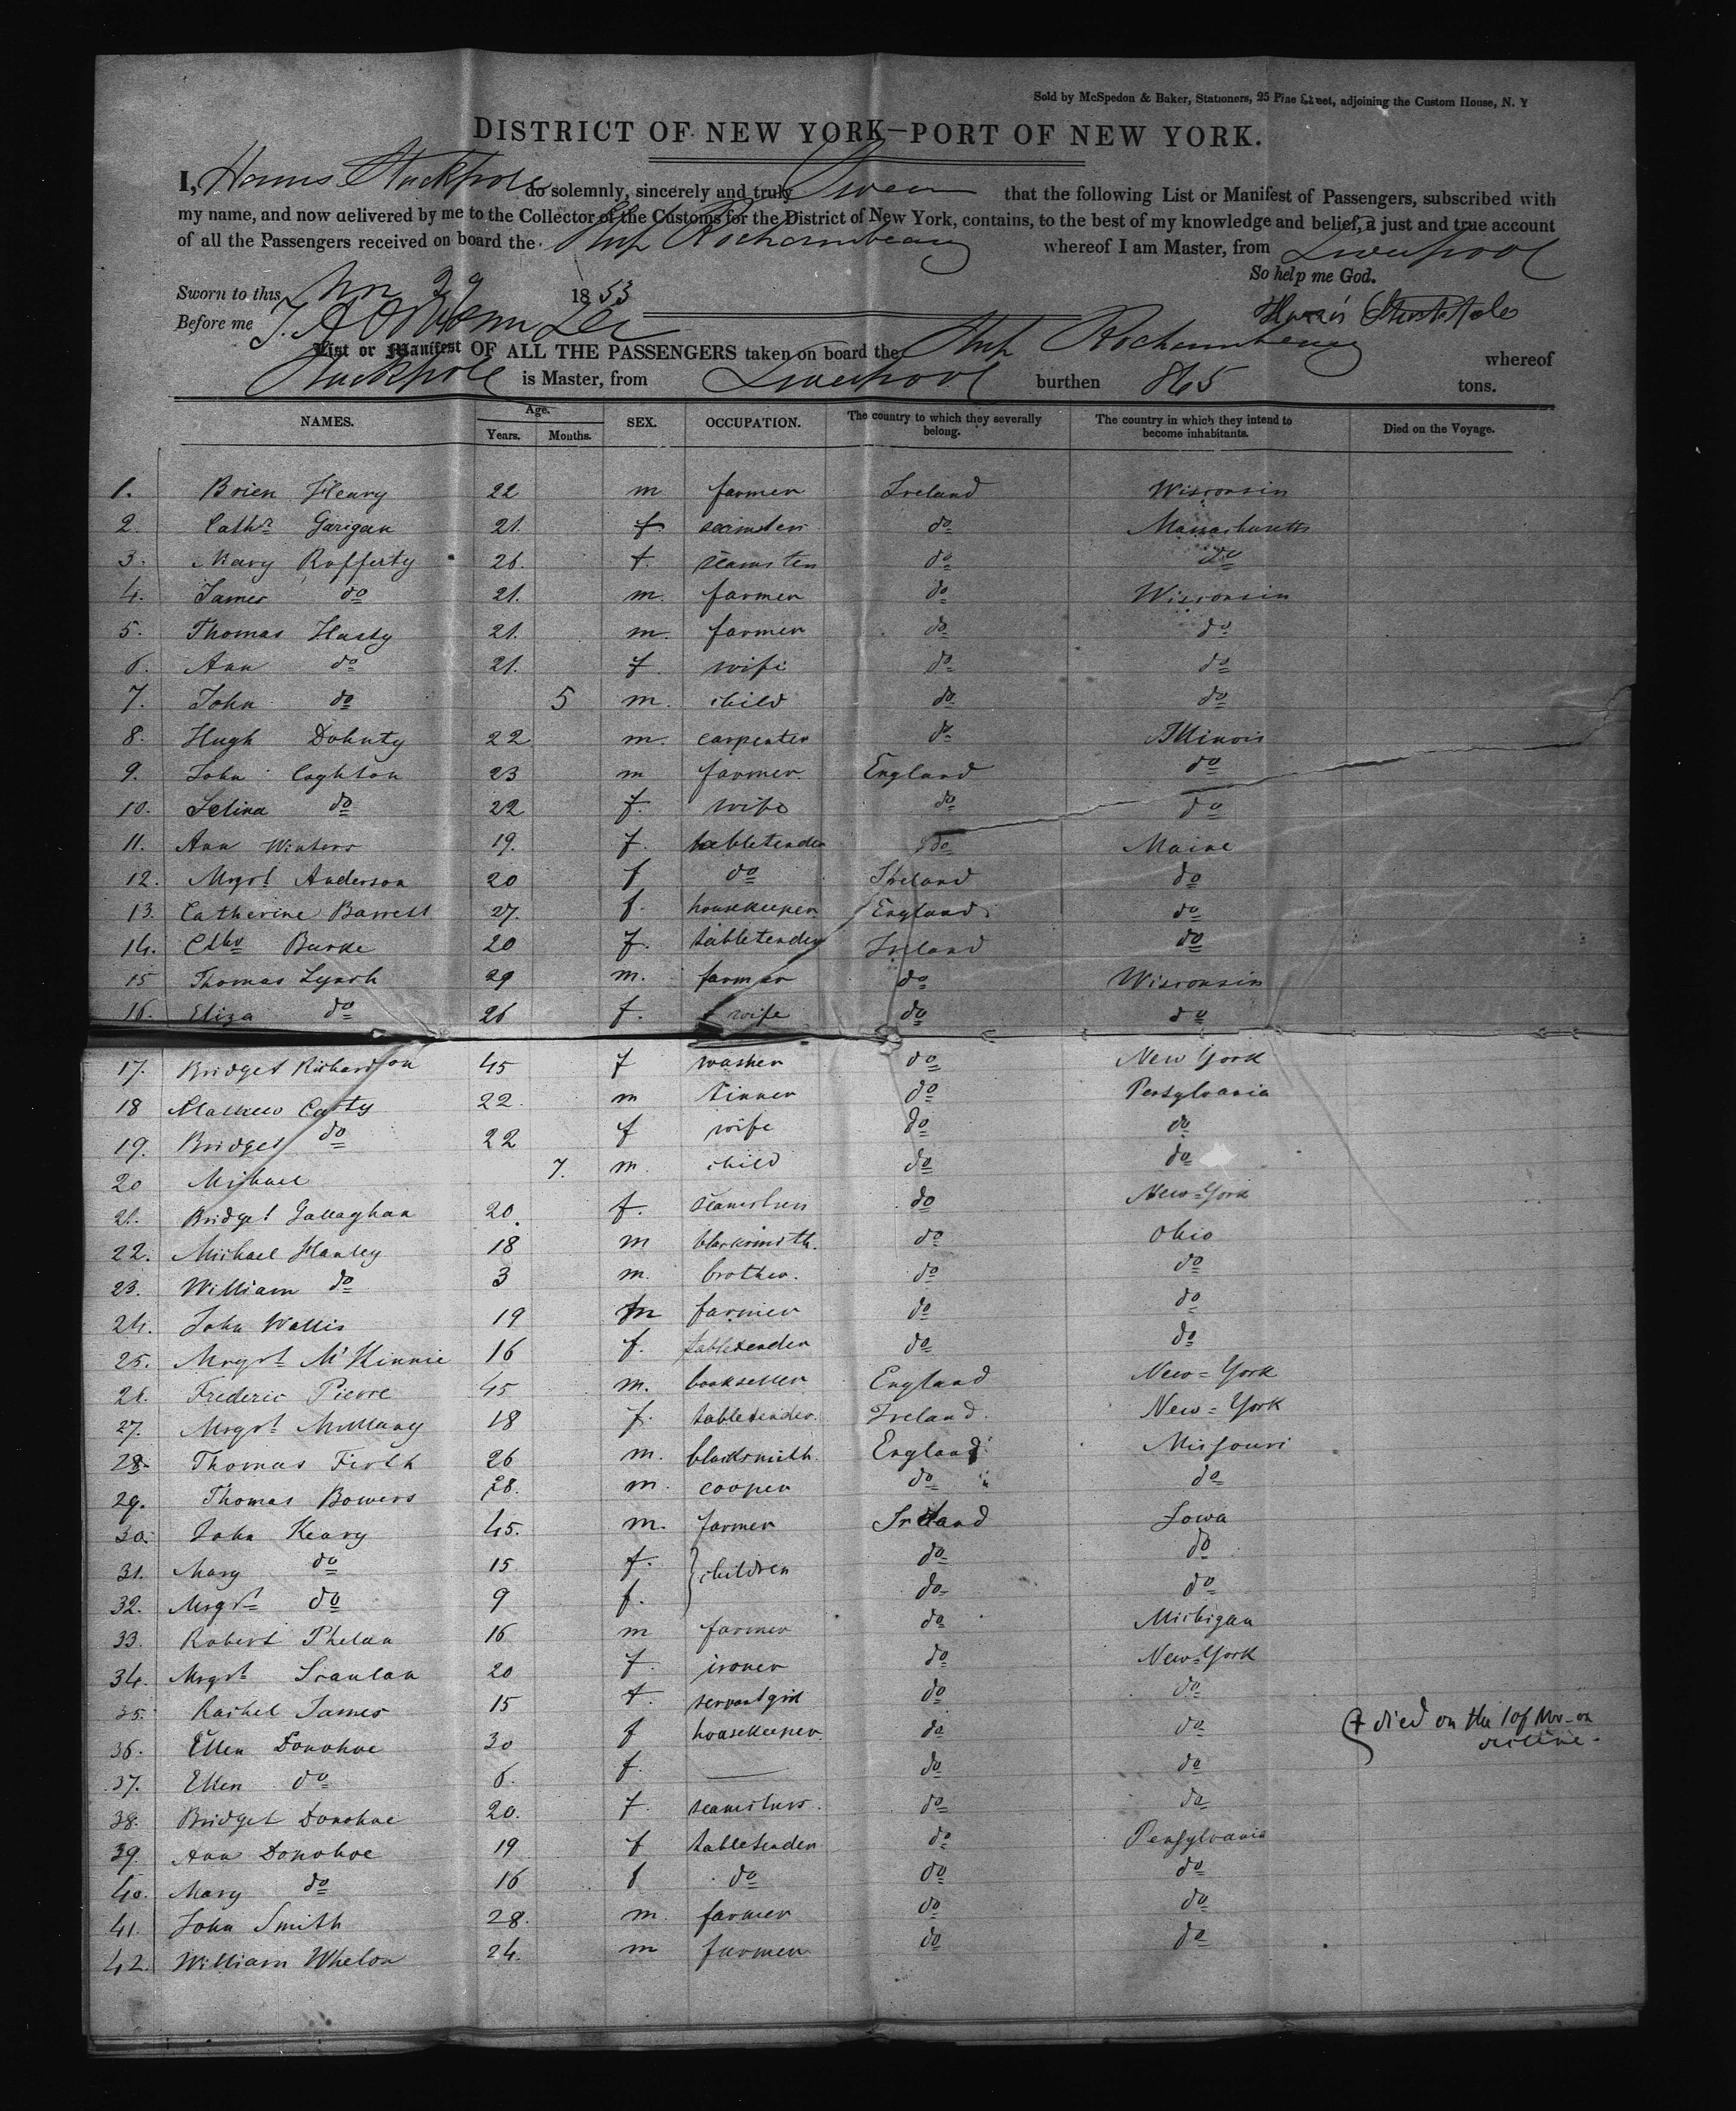 Sold by McSpedon & Baker, Stationers, 25 Pine Street, adjoining the Custom House, N. Y
DISTRICT OF NEW YORK—PORT OF NEW YORK.
I, Stackpole do solemnly, sincerely and truly Swear that the following List or Manifest of Passengers, subscribed with
my name, and now delivered by me to the Collector of the Customs for the District of New York, contains, to the best of my knowledge and belief, a just and true account
of all the Passengers received on board the Ship Rochambeau whereof I am Master, from Liverpool
So help me God.
Sworn to this Nov 29 1853
Before me
List or Manifest OF ALL THE PASSENGERS taken on board the Ship Rochambeau whereof
Stackpole is Master, from Liverpool burthen 865 tons.
NAMES. Age. Years. Months. SEX. OCCUPATION. The country to which they severally belong. The country in which they intend to become inhabitants. Died on the Voyage.
1. Brien Henry 22 m farmer Ireland Wisconsin
2. Cathr Garigan 21. f. do Massachusetts
3. Mary Rafferty 26. f. do do
4. James do 21. m. farmer do Wisconsin
5. Thomas Hasty 21. m. farmer do do
6. Ann do 21. f wife do do
7. John do 5 m. child do do
8. Hugh Dohuty 22 m. carpenter do Illinois
9. John Coghton 23 m farmer. England do
10. Selina do 22 f. wife do do
11. Ann Winters 19. f. tabletender do Maine
12. Mrgrt Anderson 20 f do Ireland do
13. Catherine Barrett 27. f. housekeeper England do
14. Burke 20 f. tabletender Ireland do
15 Thomas Lynch 29 m. farmer do Wisconsin
16. Eliza do 26 f. wife do do
17. Bridget Richardson 45 f washer do New York
18 Mathew Carty 22. m tinner do Pensylvania
19. Bridget do 22 f wife do do
20 Michael 7. m. child do do
21. Bridget Gallaghan 20. f. seamstress do New=York
22. Michael Hanley 18 m blacksmith. do Ohio
23. William do 3 m. brother. do do
24. John Wallis 19 m farmer do do
25. Mrgrt McKinnie 16 f. tabletender do do
26. Frederic Pierre 45 m. bookseller England New=York
27. Mrgrt McMany 18 f. tabletender. Ireland. New=York
28. Thomas Firth 26 m. blacksmith. England Missouri
29. Thomas Bowers 28. m. cooper do do
30. John Keary 45. m. farmer Ireland Iowa
31. Mary do 15 f. } children do do
32. Mrgrt do 9 f. do do
33. Robert Phelan 16 m farmer do Michigan
34. Mrgrt Scanlan 20 f. ironer do New=York
35. Rachel James 15 f. servant girl do do
36. Ellen Donohoe 30 f housekeeper. do do died on the 1 of Nov on
37. Ellen do 6. f. — do do
38. Bridget Donohoe 20. f. seamstress. do do
39. Ann Donohoe 19 f tabletender do Pensylvania
40. Mary do 16 f do do do
41. John Smith 28. m. farmer do do
42. William Whelon 24. m farmer do do